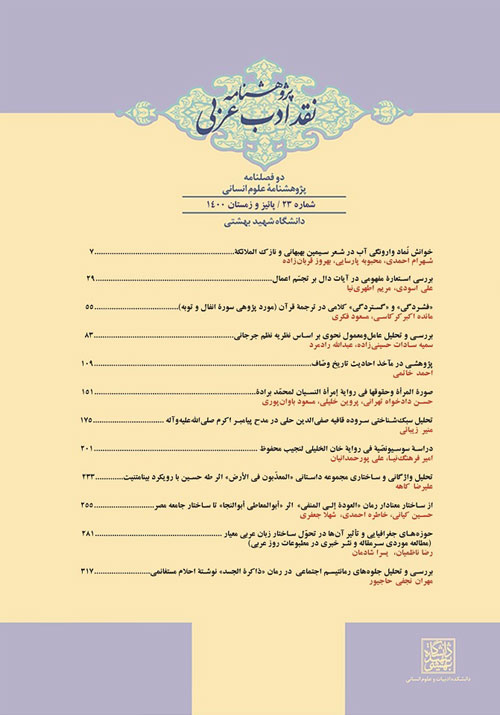 پژوهشنامه
نقد ادب عربی
دو فصلنامه
پژوهشنامهٔ علوم انسانی
شماره ۲۳ / پائیز و زمستان ۱۴۰۰
دانشگاه شهید بهشتی
خوانش نماد وارونگی آب در شعر سیمین بهبهانی و نازک الملائکة..........۷
شهرام احمدی، محبوبه پارسایی، بهروز قربان‌زاده
بررسی استعارهٔ مفهومی در آیات دال بر تجسّم اعمال..........۲۹
علی اسودی، مریم اطهری‌نیا
«فشردگی» و «گستردگی» کلامی در ترجمهٔ قرآن (مورد پژوهی سورهٔ انفال و توبه)..........۵۵
مائده اکبرکرکاسی، مسعود فکری
بررسی و تحلیل عامل‌ومعمول نحوی بر اساس نظریه نظم جرجانی..........۸۳
سمیه سادات حسینی‌زاده، عبدالله رادمرد
پژوهشی در مآخذ احادیث تاریخ وصّاف..........۱۰۹
احمد خاتمی
صورة المرأة وحقوقها في روایة إمرأة النسیان لمحمّد برادة..........۱۵۱
حسن دادخواه تهرانی، پروین خلیلی، مسعود باوان‌پوری
تحلیل سبک‌شناختی سروده قافیه صفی‌الدین حلی در مدح پیامبر اکرم صلی‌الله‌علیه‌وآله..........۱۷۵
منیر زیبائی
دراسة سوسیونصّیة في روایة خان الخلیلي لنجیب محفوظ..........۲۰۱
امیر فرهنگ‌نیا، علی پورحمدانیان
تحلیل واژگانی و ساختاری مجموعه داستانی «المعذّبون في الأرض» اثر طه حسین با رویکرد بینامتنیت..........۲۳۳
علیرضا کاهه
از ساختار معنادار رمان «العودة إلی المنفی» اثر «أبوالمعاطی أبوالنجا» تا ساختار جامعه مصر..........۲۵۵
حسین کیانی، خاطره احمدی، شهلا جعفری
حوزه‌های جغرافیایی و تأثیر آن‌ها در تحوّل ساختار زبان عربی معیار..........۲۸۱
(مطالعه موردی سرمقاله و نثر خبری در مطبوعات روز عربی)
رضا ناظمیان، یسرا شادمان
بررسی و تحلیل جلوه‌های رمانتیسم اجتماعی در رمان «ذاکرة الجسد» نوشتهٔ احلام مستغانمی..........۳۱۷
مهران نجفی حاجیور
دانشگاه شهید بهشتی
دانشکده ادبیات و علوم انسانی